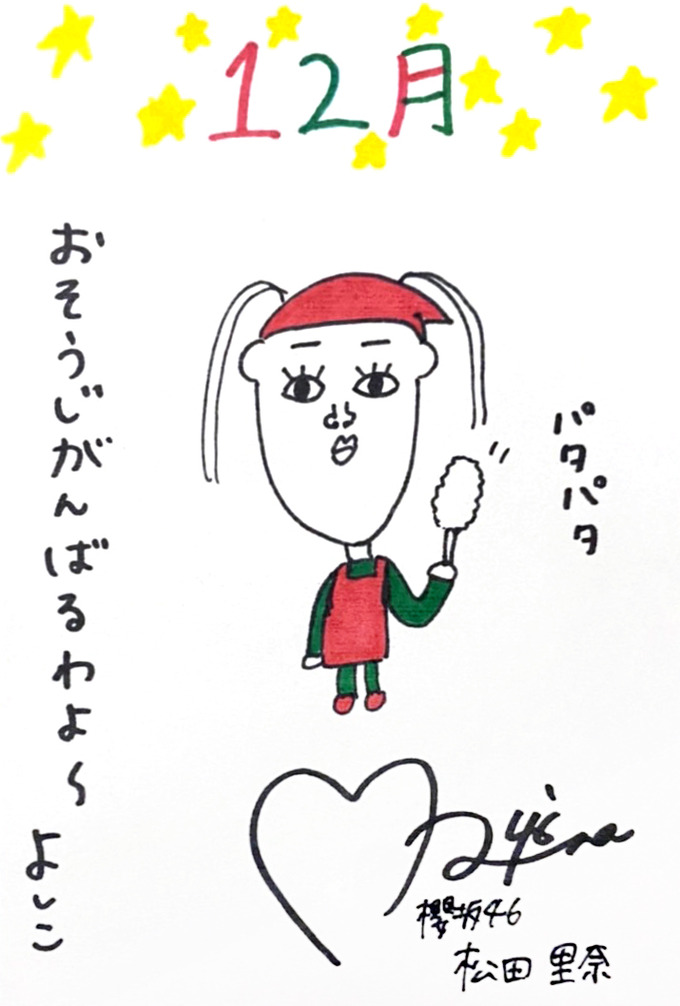 12月
おそうじがんばるわよ〜
よしこ
パタパタ
櫻坂46
松田 里奈